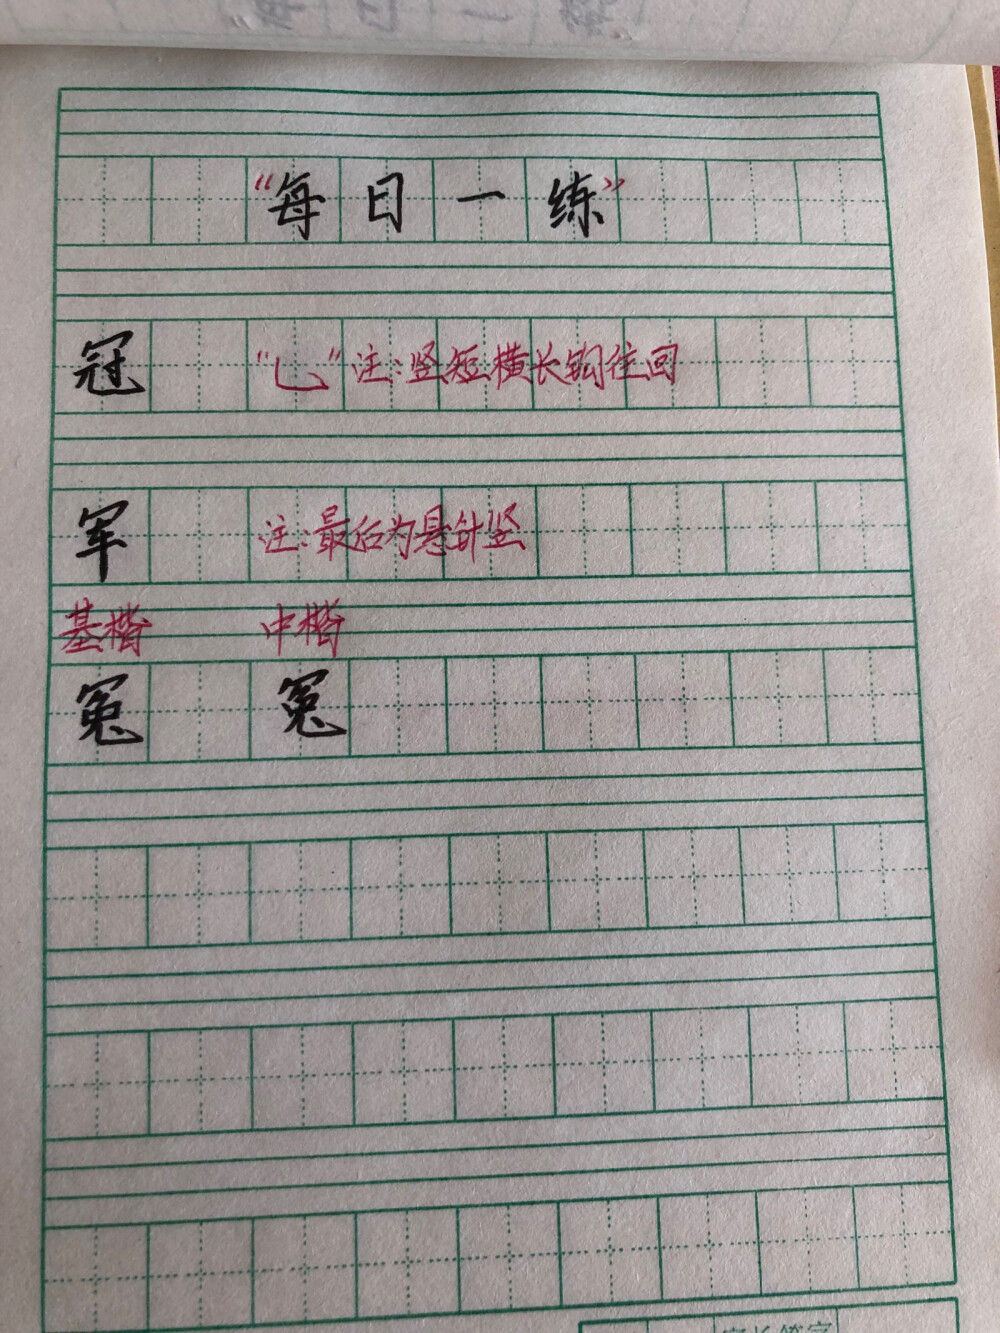 “每日一练”
冠 “乚”注:竖短横长钩往回
军 注:最后为悬针竖
基楷 中楷
冤 冤
家长签字